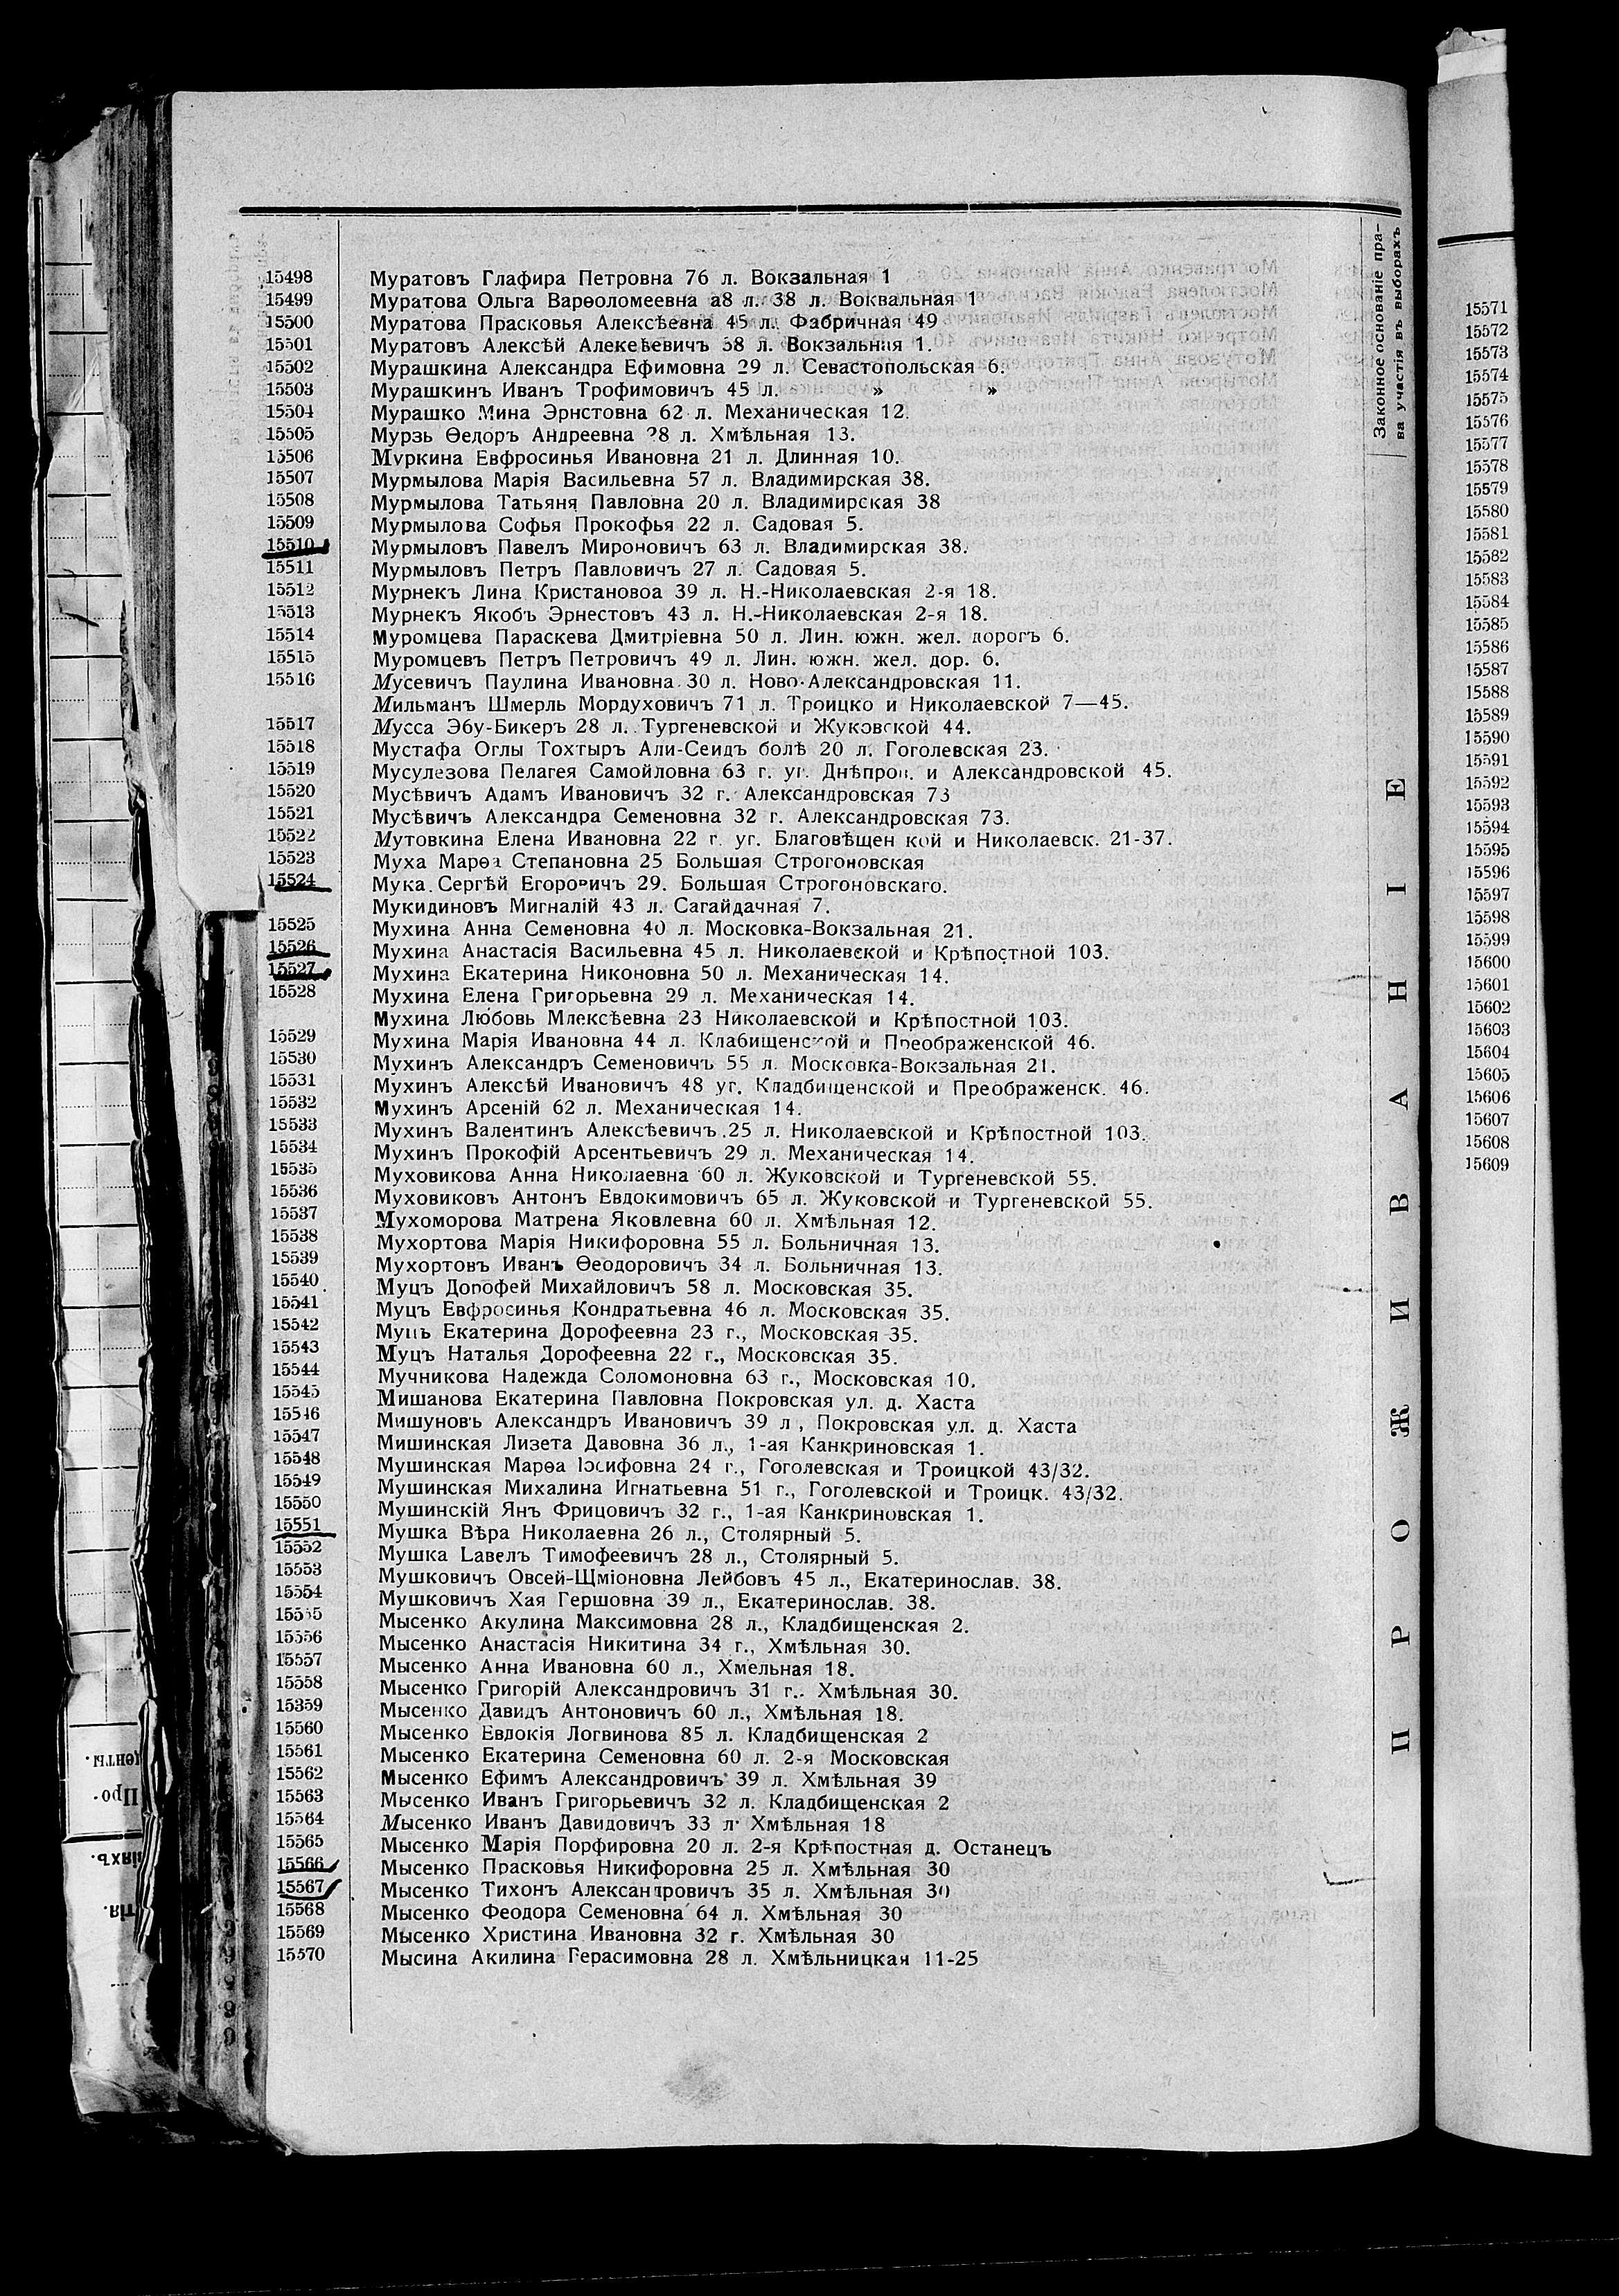 15498 Муратовъ Глафира Петровна 76 л. Вокзальная 1
15499 Муратова Ольга Варѳоломеевна а8 л. 38 л. Воквальная 1
15500 Муратова Прасковья Алексѣевна 45 л. Фабричная 49
15501 Муратовъ Алексѣй Алекеѣевичъ 58 л. Вокзальная 1.
15502 Мурашкина Александра Ефимовна 29 л. Севастопольская 6.
15503 Мурашкинъ Иванъ Трофимовичъ 45 л. » »
15504 Мурашко Мина Эрнстовна 62 л. Механическая 12.
15505 Мурзь Ѳедоръ Андреевна 28 л. Хмѣльная 13.
15506 Муркина Евфросинья Ивановна 21 л. Длинная 10.
15507 Мурмылова Марія Васильевна 57 л. Владимирская 38.
15508 Мурмылова Татьяня Павловна 20 л. Владимирская 38
15509 Мурмылова Софья Прокофья 22 л. Садовая 5.
15510 Мурмыловъ Павелъ Мироновичъ 63 л. Владимирская 38.
15511 Мурмыловъ Петръ Павловичъ 27 л. Садовая 5.
15512 Мурнекъ Лина Кристановоа 39 л. Н.-Николаевская 2-я 18.
15513 Мурнекъ Якобъ Эрнестовъ 43 л. Н.-Николаевская 2-я 18.
15514 Муромцева Параскева Дмитріевна 50 л. Лин. южн. жел. дорогъ 6.
15515 Муромцевъ Петръ Петровичъ 49 л. Лин. южн. жел. дор. 6.
15516 Мусевичъ Паулина Ивановна 30 л. Ново-Александровская 11.
Мильманъ Шмерль Мордуховичъ 71 л. Троицко и Николаевской 7—45.
15517 Мусса Эбу-Бикеръ 28 л. Тургеневской и Жуковской 44.
15518 Мустафа Оглы Тохтыръ Али-Сеидъ болѣ 20 л. Гоголевская 23.
15519 Мусулезова Пелагея Самойловна 63 г. уг. Днѣпров. и Александровской 45.
15520 Мусѣвичъ Адамъ Ивановичъ 32 г. Александровская 73
15521 Мусѣвичъ Александра Семеновна 32 г. Александровская 73.
15522 Мутовкина Елена Ивановна 22 г. уг. Благовѣщен кой и Николаевск. 21-37.
15523 Муха Марѳа Степановна 25 Большая Строгоновская
15524 Мука Сергѣй Егоровичъ 29. Большая Строгоновскаго.
Мукидиновъ Мигналій 43 л. Сагайдачная 7.
15525 Мухина Анна Семеновна 40 л. Московка-Вокзальная 21.
15526 Мухина Анастасія Васильевна 45 л. Николаевской и Крѣпостной 103.
15527 Мухина Екатерина Никоновна 50 л. Механическая 14.
15528 Мухина Елена Григорьевна 29 л. Механическая 14.
Мухина Любовь Млексѣевна 23 Николаевской и Крѣпостной 103.
15529 Мухина Марія Ивановна 44 л. Клабищенской и Преображенской 46.
15530 Мухинъ Александръ Семеновичъ 55 л. Московка-Вокзальная 21.
15531 Мухинъ Алексѣй Ивановичъ 48 уг. Кладбищенской и Преображенск. 46.
15532 Мухинъ Арсеній 62 л. Механическая 14.
15533 Мухинъ Валентинъ Алексѣевичъ 25 л. Николаевской и Крѣпостной 103.
15534 Мухинъ Прокофій Арсентьевичъ 29 л. Механическая 14.
15535 Муховикова Анна Николаевна 60 л. Жуковской и Тургеневской 55.
15536 Муховиковъ Антонъ Евдокимовичъ 65 л. Жуковской и Тургеневской 55.
15537 Мухоморова Матрена Яковлевна 60 л. Хмѣльная 12.
15538 Мухортова Марія Никифоровна 55 л. Больничная 13.
15539 Мухортовъ Иванъ Ѳеодоровичъ 34 л. Больничная 13.
15540 Муцъ Дорофей Михайловичъ 58 л. Московская 35.
15541 Муцъ Евфросинья Кондратьевна 46 л. Московская 35.
15542 Муцъ Екатерина Дорофеевна 23 г., Московская 35.
15543 Муцъ Наталья Дорофеевна 22 г., Московская 35.
15544 Мучникова Надежда Соломоновна 63 г., Московская 10.
15545 Мишанова Екатерина Павловна Покровская ул. д. Хаста
15546 Мишуновъ Александръ Ивановичъ 39 л , Покровская ул. д. Хаста
15547 Мишинская Лизета Давовна 36 л., 1-ая Канкриновская 1.
15548 Мушинская Марѳа Іосифовна 24 г., Гоголевская и Троицкой 43/32.
15549 Мушинская Михалина Игнатьевна 51 г., Гоголевской и Троицк. 43/32.
15550 Мушинскій Янъ Фрицовичъ 32 г., 1-ая Канкриновская 1.
15551 Мушка Вѣра Николаевна 26 л., Столярный 5.
15552 Мушка Lавелъ Тимофеевичъ 28 л., Столярный 5.
15553 Мушковичъ Овсей-Щміоновна Лейбовъ 45 л., Екатеринослав. 38.
15554 Мушковичъ Хая Гершовна 39 л., Екатеринослав. 38.
15555 Мысенко Акулина Максимовна 28 л., Кладбищенская 2.
15556 Мысенко Анастасія Никитина 34 г., Хмѣльная 30.
15557 Мысенко Анна Ивановна 60 л., Хмельная 18.
15558 Мысенко Григорій Александровичъ 31 г.. Хмѣльная 30.
15359 Мысенко Давидъ Антоновичъ 60 л., Хмѣльная 18.
15560 Мысенко Евдокія Логвинова 85 л. Кладбищенская 2
15561 Мысенко Екатерина Семеновна 60 л. 2-я Московская
15562 Мысенко Ефимъ Александровичъ 39 л. Хмѣльная 39
15563 Мысенко Иванъ Григорьевичъ 32 л. Кладбищенская 2
15564 Мысенко Иванъ Давидовичъ 33 л· Хмѣльная 18
15565 Мысенко Марія Порфировна 20 л. 2-я Крѣпостная д. Останецъ
15566 Мысенко Прасковья Никифоровна 25 л. Хмѣльная 30
15567 Мысенко Тихонъ Александровичъ 35 л. Хмѣльная 30
15568 Мысенко Феодора Семеновна 64 л. Хмѣльная 30
15569 Мысенко Христина Ивановна 32 г. Хмѣльная 30
15570 Мысина Акилина Герасимовна 28 л. Хмѣльницкая 11-25
Законное основаніе пра-
ва участія въ выборахъ
ПРОЖИВАНІЕ
15571
15572
15573
15574
15575
15576
15577
15578
15579
15580
15581
15582
15583
15584
15585
15586
15587
15588
15589
15590
15591
15592
15593
15594
15595
15596
15597
15598
15599
15600
15601
15602
15603
15604
15605
15606
15607
15608
15609